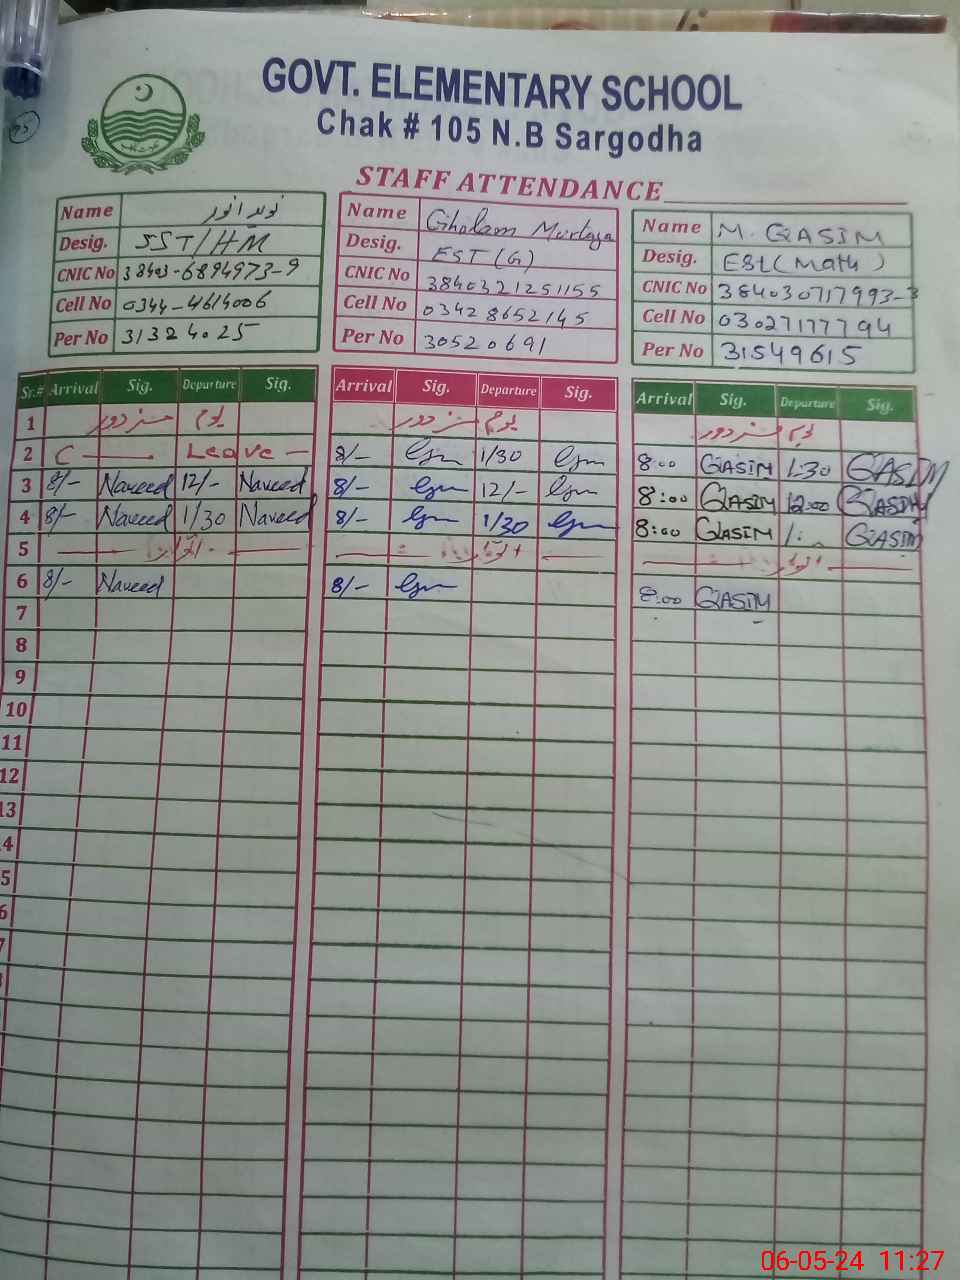 GOVT. ELEMENTARY SCHOOL
Chak # 105 N.B Sargodha
STAFF ATTENDANCE
Name نوید انور
Desig. SST/HM
CNIC No 38403-6894973-9
Cell No 0344-4614006
Per No 31324025
Name Gholam Murtaza
Desig. EST (G)
CNIC No 3840321251155
Cell No 03428652145
Per No 30520691
Name M. QASIM
Desig. ESt (Math)
CNIC No 384030717993-3
Cell No 03027177794
Per No 31549615
Sr.# Arrival Sig. Departure Sig. Arrival Sig. Departure Sig. Arrival Sig. Departure Sig.
1 یوم مزدور یوم مزدور یوم مزدور
2 C Leave 8/- 1/30 8:00 QASIM 1:30 QASIM
3 8/- Naveed 12/- Naveed 8/- 12/- 8:00 QASIM 12:00 QASIM
4 8/- Naveed 1/30 Naveed 8/- 1/30 8:00 QASIM QASIM
5 اتوار اتوار اتوار
6 8/- Naveed 8/- 8:00 QASIM
7
8
9
10
11
12
13
4
5
6
7
06-05-24 11:27